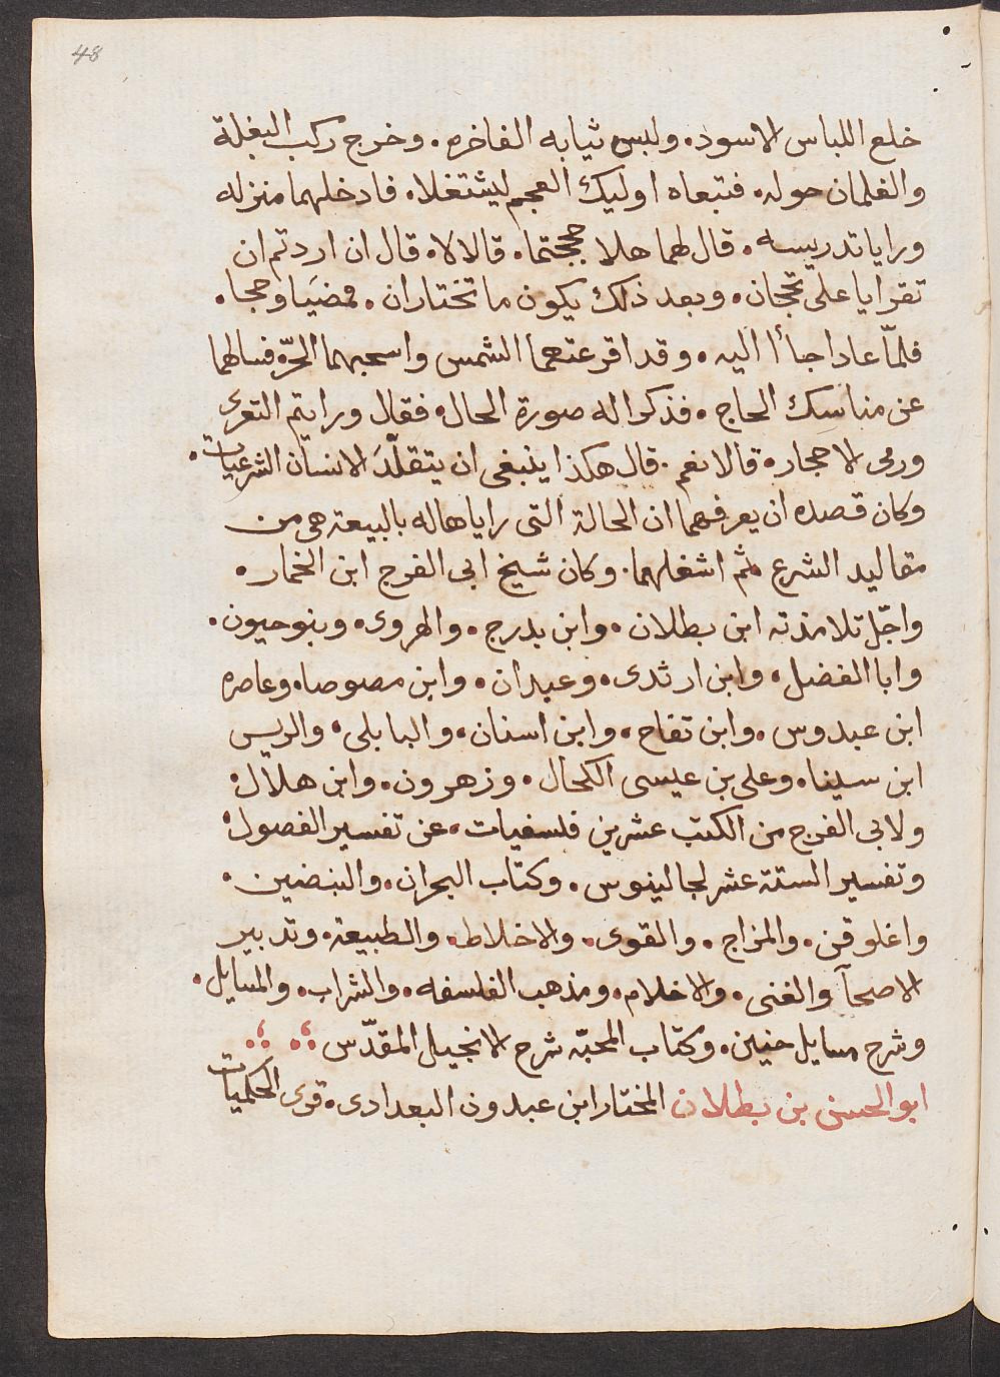 48
خلع اللباس الاسود. ولبس ثيابه الفاخره. وخرج ركب البغلة
والغلمان حوله. فتبعاه اوليك العجم ليشتغلا. فادخلهما منزله
ورايا تدريسه. قال لهما هلا حججتما. قالا لا. قال ان اردتم ان
تقرايا علي تحجان. وبعد ذلك يكون ما تختاران. فمضيَا وحجا.
فلمّا عادا جاأا اليه. وقد اقرعتهما الشمس واسحبهما الحرّ. فسالهما
عن مناسك الحاج. فذكرا له صورة الحال. فقال ورايتم التعرى
ورمى الاحجار. قالا نعم. قال هكذا ينبغى ان يتقلّدَ الانسان الشرعيات.
وكان قصده ان يعرفهما ان الحالة التى راياها له بالبيعة هى من
مقاليد الشرع ثم اشغلهما. وكان شيخ ابى الفرج ابن الخمار.
واجّل تلامذته ابن بطلان. وابن بدرج. والهروى. وبنوحيون.
وابا الفضل. وابن ارثدى. وعبدان. وابن مصوصا. وعاصره
ابن عبدوس. وابن تفاح. وابن اسنان. والبابلى. والريس
ابن سينا. وعلي بن عيسى الكحال. وزهرون. وابن هلال.
ولابى الفرج من الكتب عشرين فلسفيات. عن تفسير الفصول.
وتفسير الستة عشر لجالينوس. وكتاب البحران. والنبضين.
واغلوقن. والمزاج. والقوى. والاخلاط. والطبيعة. وتدبير
الاصحآ والغنى. والاحلام. ومذهب الفلسفه. والشراب. والمسايل.
وشرح مسايل حنين. وكتاب المحبّه شرح الانجيل المقدّس
ابو الحسن بن بطلان المختار ابن عبدون البعدادى. قوى الحكميات